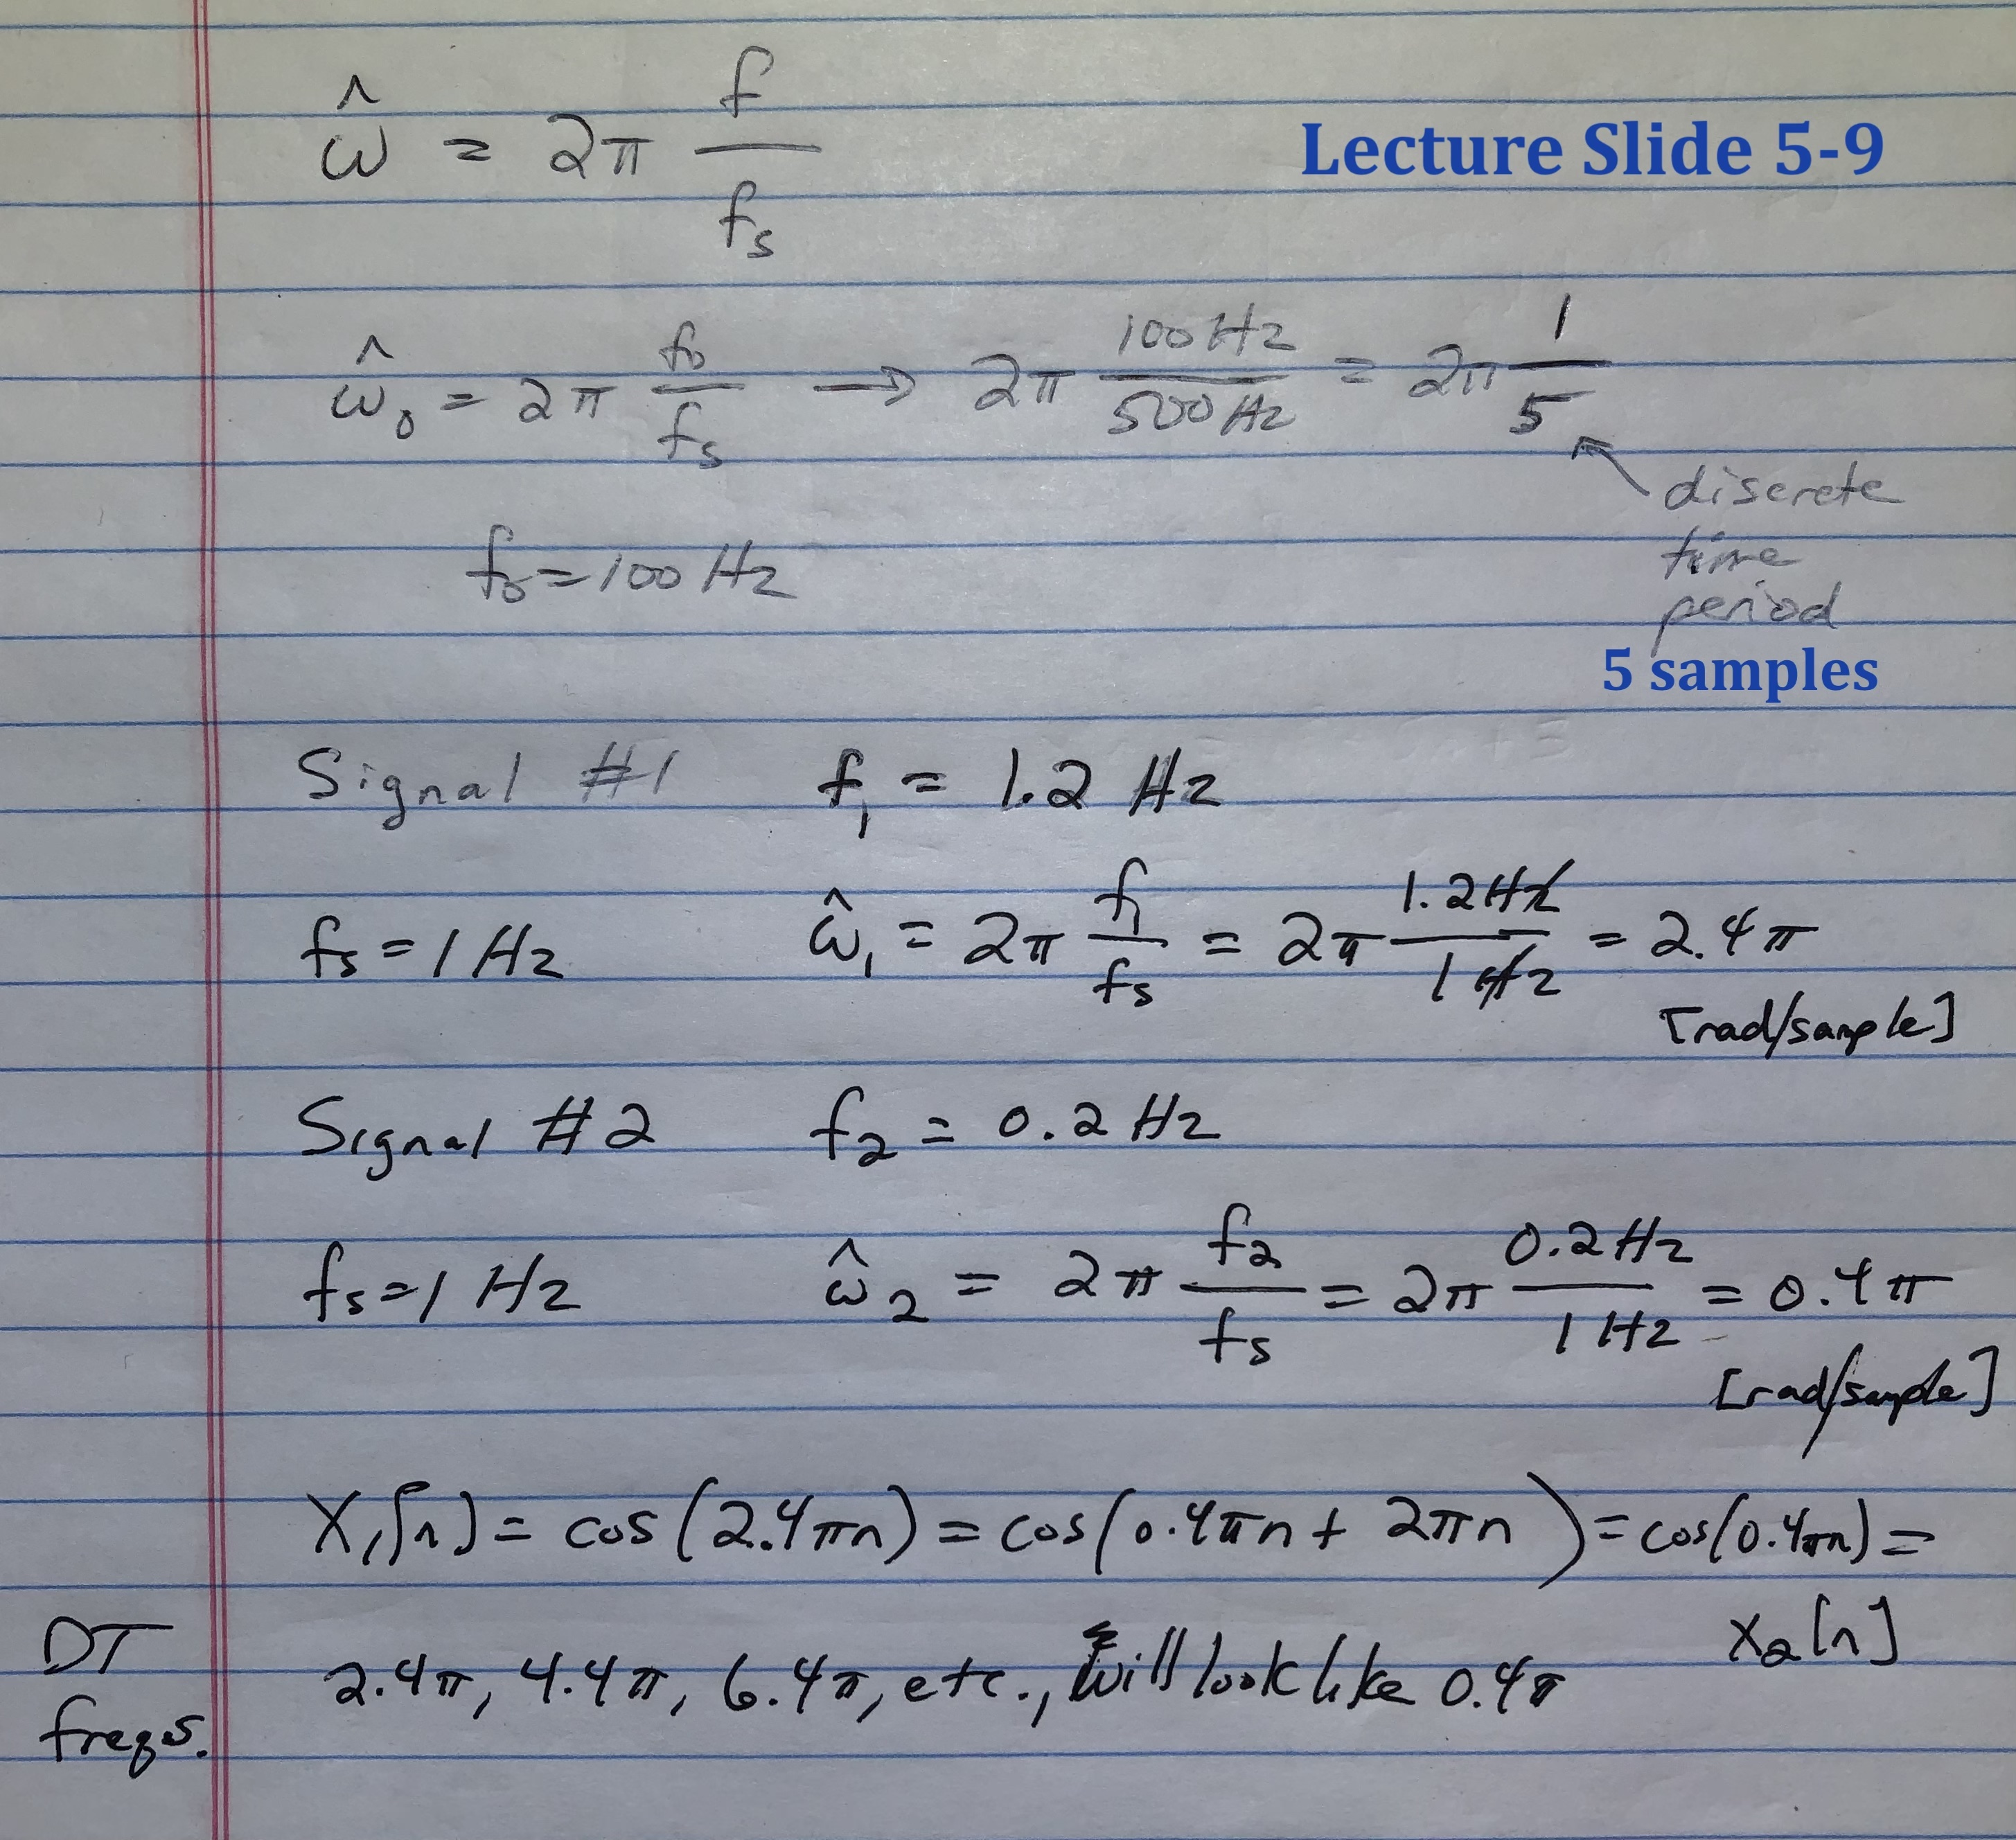 ω̂ = 2π f/fs
Lecture Slide 5-9
ω̂₀ = 2π f₀/fs → 2π 100 Hz/500 Hz = 2π 1/5
discrete
time
period
5 samples
f₀ = 100 Hz
Signal #1 f₁ = 1.2 Hz
fs = 1 Hz ω̂₁ = 2π f₁/fs = 2π 1.2 Hz/1 Hz = 2.4π
[rad/sample]
Signal #2 f₂ = 0.2 Hz
fs = 1 Hz ω̂₂ = 2π f₂/fs = 2π 0.2 Hz/1 Hz = 0.4π
[rad/sample]
X₁[n] = cos(2.4πn) = cos(0.4πn + 2πn) = cos(0.4πn) =
X₂[n]
DT
freqs.
2.4π, 4.4π, 6.4π, etc., will look like 0.4π